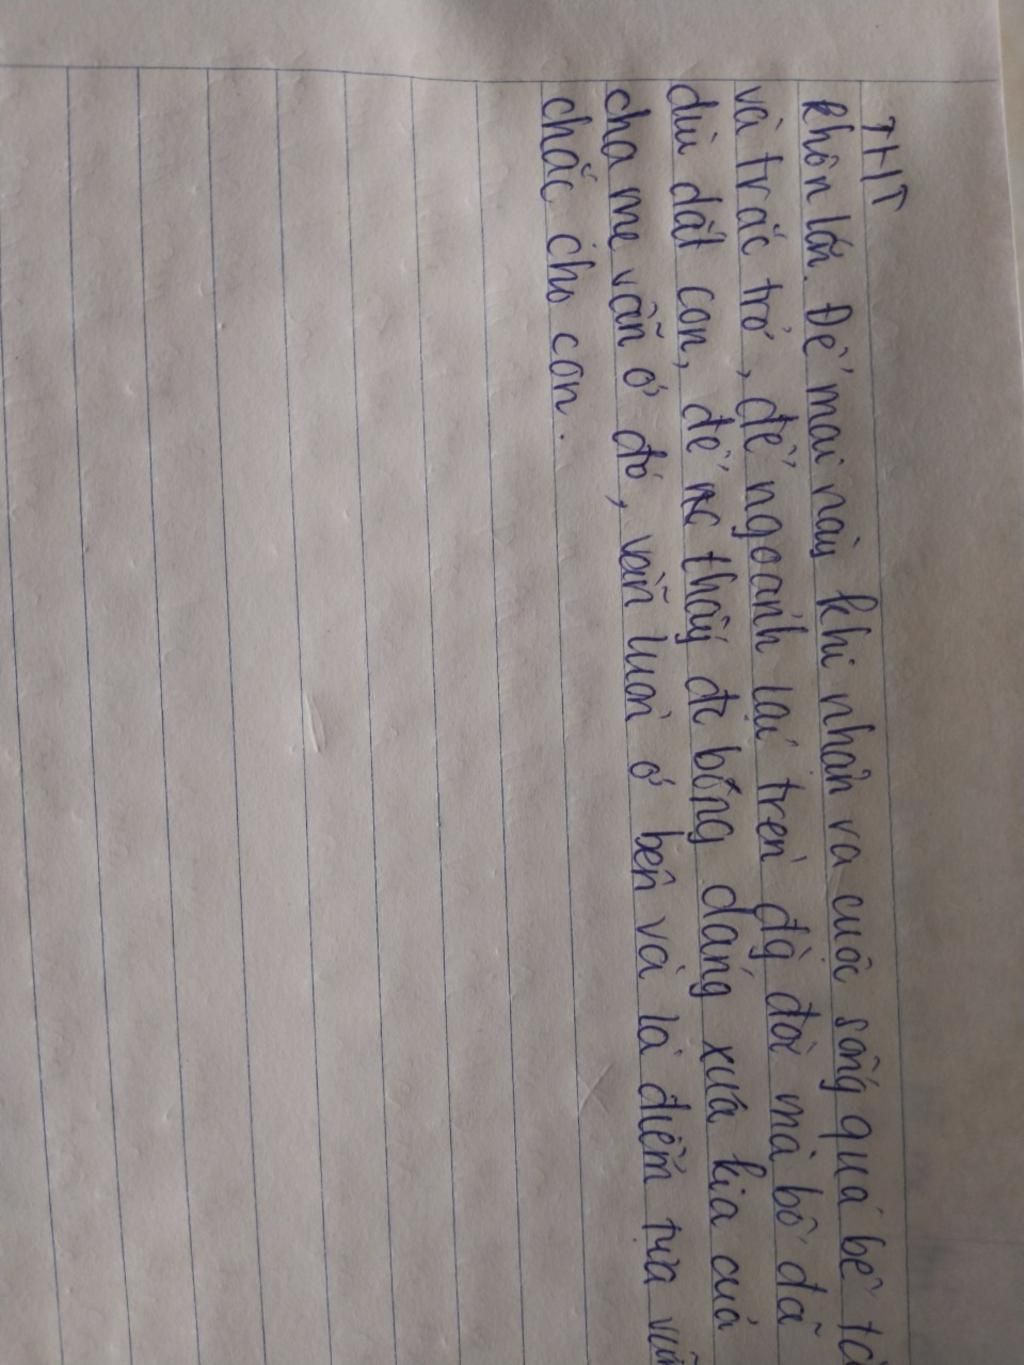 THT
khôn lớn. Để mai này khi nhận ra cuộc sống quá bế
và trắc trở, để ngoảnh lại trên đg đời mà bố đã
dìu dắt con, để thấy đc bóng dáng xưa kia của
cha mẹ vẫn ở đó, vẫn luôn ở bên và là điểm tựa
chắc cho con.